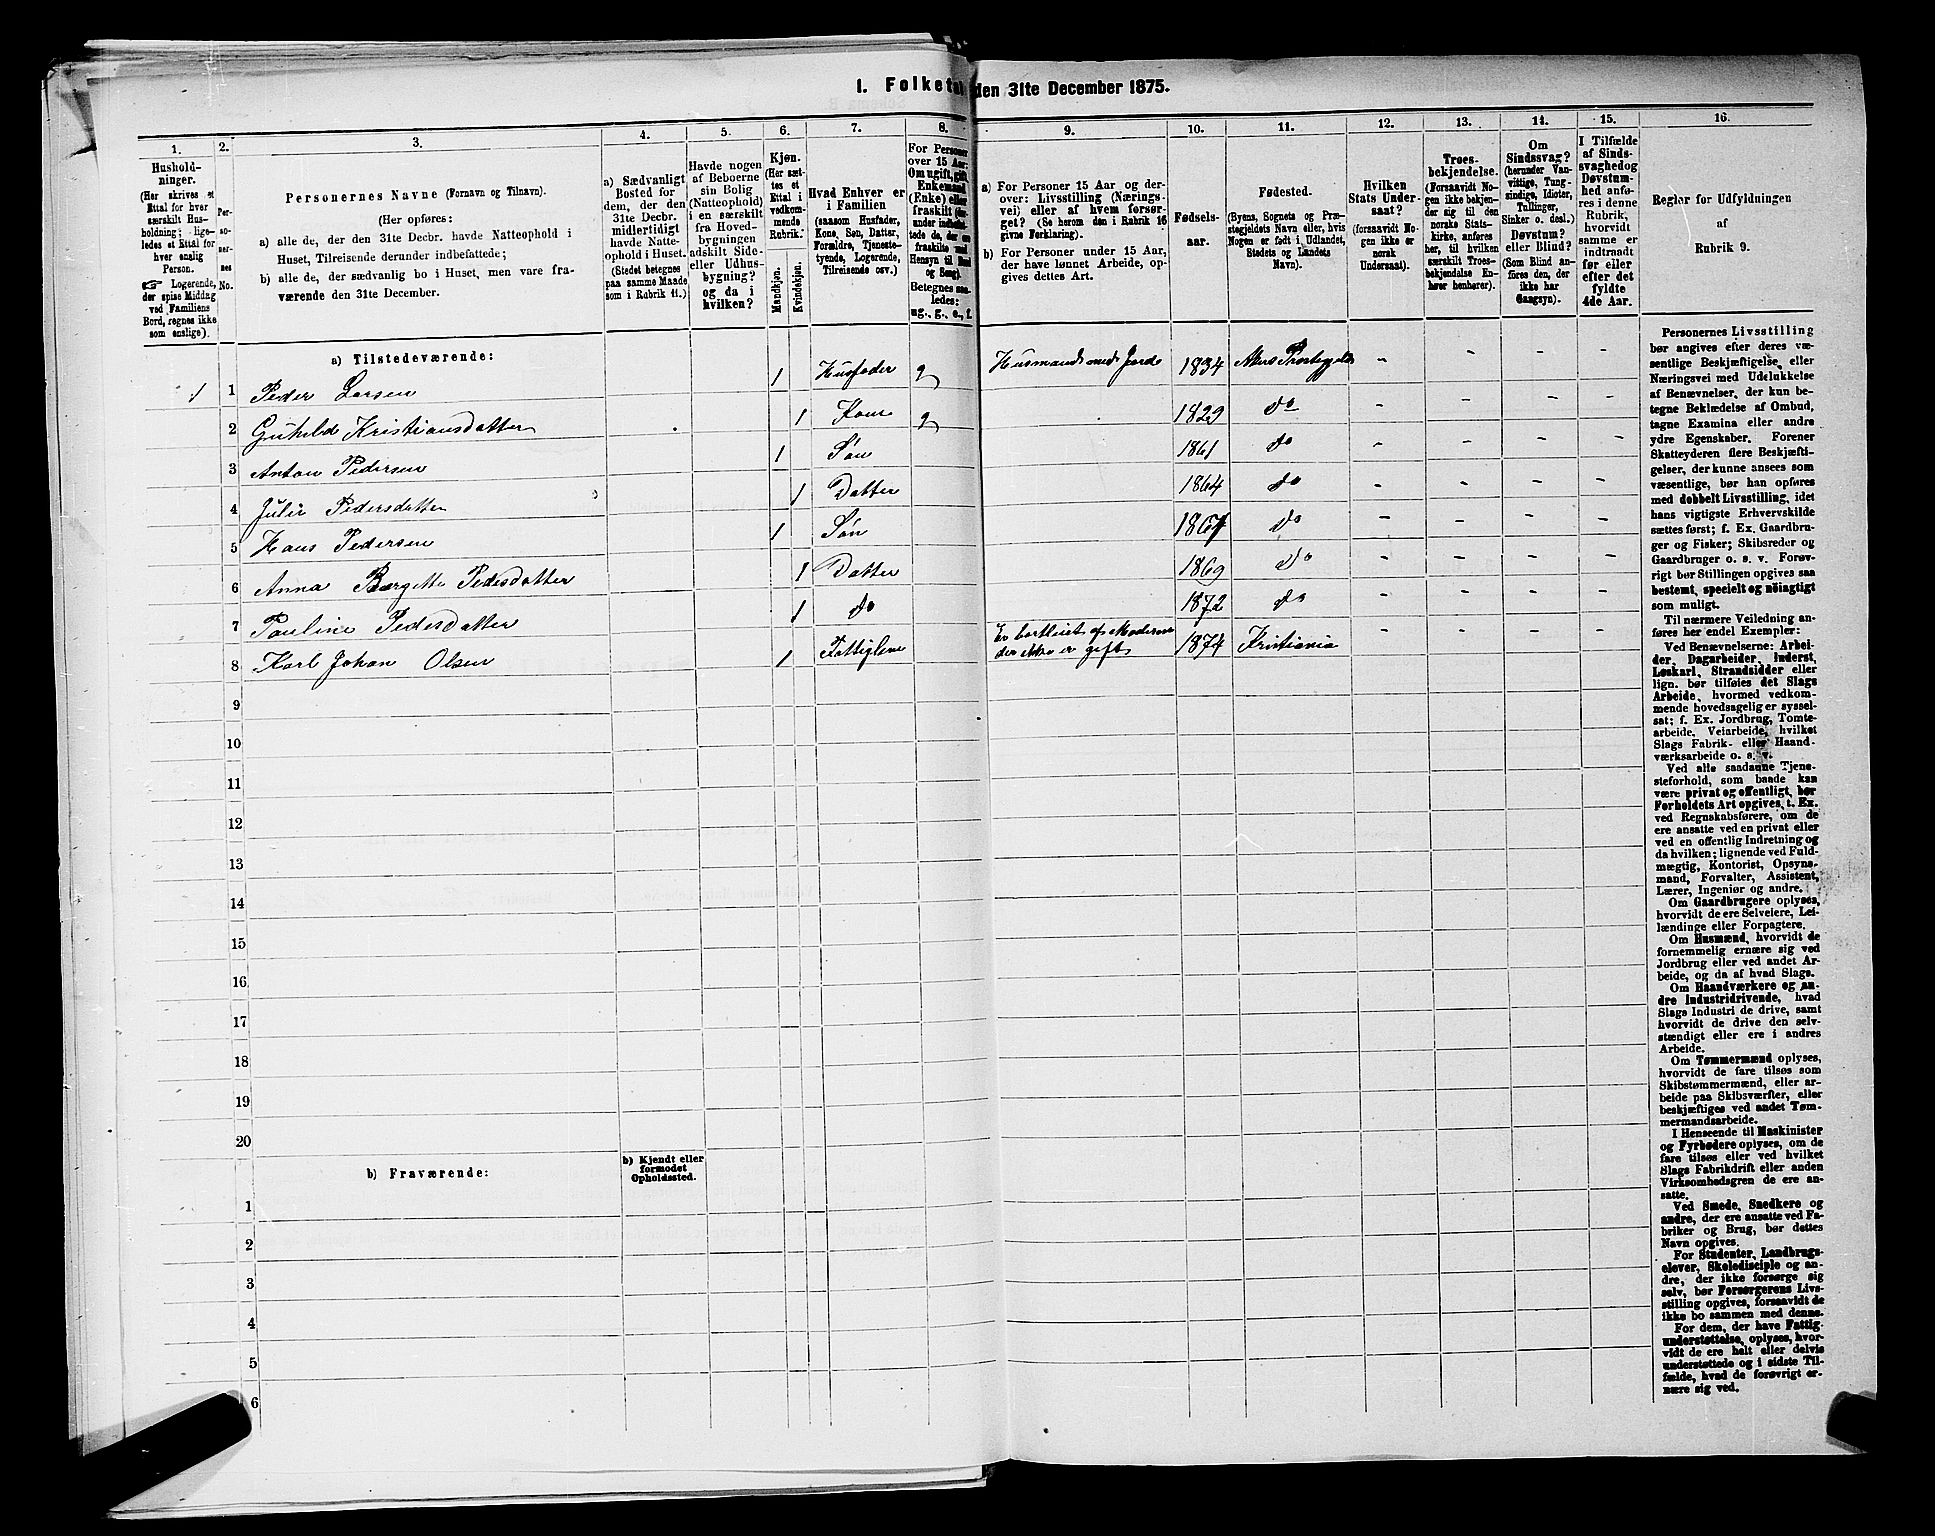 1. Folketal den 31te December 1875.
1. 2. 3. 4. 5. 6. 7. 8. 9. 10. 11. 12. 13. 14. 15. 16.
Hushold-
ninger.
(Her skrives et
Ettal for hver
særskilt Hus-
holdning; lige-
ledes et Ettal for
hver enslig
Person.
☞ Logerende,
der spise Middag
ved Familiens
Bord, regnes ikke
som enslige).
Per-
so-
ner-
nes
No.
Personernes Navne (Fornavn og Tilnavn).
(Her opføres:
a) alle de, der den 31te Decbr. havde Natteophold i
Huset, Tilreisende derunder indbefattede;
b) alle de, der sædvanlig bo i Huset, men vare fra-
værende den 31te December.
a) Sædvanligt
Bosted for
dem, der den
31te Decbr.
midlertidigt
havde Natte-
ophold i Huset.
(Stedet betegnes
paa samme Maade
som i Rubrik 11.)
Havde nogen
af Beboerne
sin Bolig
(Natteophold)
i en særskilt
fra Hoved-
bygningen
adskilt Side-
eller Udhus-
bygning?
og da i
hvilken?
Kjøn.
(Her sæt-
tes et
Ettal i
vedkom-
mende
Rubrik.
Mandkjøn.
Kvindekjøn.
Hvad Enhver er
i Familien
(saasom Husfader,
Kone, Søn, Datter,
Forældre, Tjeneste-
tyende, Logerende,
Tilreisende osv.)
For Personer
over 15 Aar:
Om ugift, gift,
Enkemand
(Enke) eller
fraskilt
Betegnes saa-
ledes:
ug., g., e., f.
a) For Personer 15 Aar og der-
over: Livsstilling (Nærings-
vei) eller af hvem forsør-
get? (Se herom den i Rubrik 16
givne Forklaring).
b) For Personer under 15 Aar,
der have lønnet Arbeide, op-
gives dettes Art.
Fødsels-
aar.
Fødested.
(Byens, Sognets og Præ-
stegjeldets Navn eller, hvis
Nogen er født i Udlandet,
Stedets og Landets
Navn).
Hvilken
Stats Under-
saat?
(forsaavidt No-
gen ikke er
norsk
Undersaat).
Troes-
bekjendelse.
(Forsaavidt No-
gen ikke bekjen-
der sig til den
norske Stats-
kirke, anføres
her, til hvilken
særskilt Troes-
bekjendelse En-
hver henhører).
Om
Sindssvag?
(herunder Van-
vittige, Tung-
sindige, Idioter,
Tullinger,
Sinker o. desl.)
Døvstum?
eller Blind?
(Som Blind an-
føres den, der
ikke har
Gangsyn).
I Tilfælde
af Sinds-
svaghed og
Døvstum-
hed anfø-
res i denne
Rubrik,
hvorvidt
samme er
indtraadt
før eller
efter det
fyldte
4de Aar.
Regler for Udfyldningen
af
Rubrik 9.
a) Tilstedeværende:
1 1 Peder Larsen 1 Husfader g Husmand med Jord 1834 Akers Præstegjeld - - - -
2 Guhilde Kristiansdatter 1 Kone g 1829 do - - - -
3 Anton Pedersen 1 Søn 1861 do - - - -
4 Julie Pedersdatter 1 Datter 1864 do - - - -
5 Hans Pedersen 1 Søn 1867 do - - - -
6 Anna Bergitte Pedersdatter 1 Datter 1869 do - - - -
7 Pauline Pedersdatter 1 do 1872 do - - - -
8 Karl Johan Olsen 1 Fattiglem Er bortleiet af Moderen
der ikke er gift 1874 Kristiania - - - -
9
10
11
12
13
14
15
16
17
18
19
20
b) Fraværende:
b) Kjendt eller
formodet
Opholdssted.
1
2
3
4
5
6
Personernes Livsstilling
bør angives efter deres væ-
sentlige Beskjæftigelse, eller
Næringsvei med Udelukkelse
af Benævnelser, der kun be-
tegne Beklædelse af Ombud,
tagne Examina eller andre
ydre Egenskaber. Forener
Skatteyderen flere Beskjæfti-
gelser, der kunne ansees som
væsentlige, bør han opføres
med dobbelt Livsstilling, idet
hans vigtigste Erhvervskilde
sættes først; f. Ex. Gaardbru-
ger og Fisker; Skibsreder og
Gaardbruger o. s. v. Forøv-
rigt bør Stillingen opgives saa
bestemt, specielt og nöiagtigt
som muligt.
Til nærmere Veiledning an-
føres her endel Exempler:
Ved Benævnelserne: Arbei-
der, Dagarbeider, Inderst,
Løskarl, Strandsidder eller
lign. bør tilføies det Slags
Arbeide, hvormed vedkom-
mende hovedsagelig er syssel-
sat; f. Ex. Jordbrug, Tomte-
arbeide, Veiarbeide, hvilket
Slags Fabrik- eller Haand-
værksarbeide o. s. v.
Ved alle saadanne Tjene-
steforhold, som baade kan
være privat og offentligt, bør
Forholdets Art opgives, t. Ex.
ved Regnskabsførere, om de
ere ansatte ved en privat eller
ved en offentlig Indretning og
da hvilken; lignende ved Fuld-
mægtig, Kontorist, Opsyns-
mand, Forvalter, Assistent,
Lærer, Ingeniør og andre.
Om Gaardbrugere oplyses,
hvorvidt de ere Selveiere, Lei-
lændinge eller Forpagtere.
Om Husmænd, hvorvidt de
fornemmelig ernære sig ved
Jordbrug eller ved andet Ar-
beide, og da af hvad Slags.
Om Haandværkere og an-
dre Industridrivende, hvad
Slags Industri de drive, samt
hvorvidt de drive den selv-
stændigt eller ere i andres
Arbeide.
Om Tømmermænd oplyses,
hvorvidt de fare tilsøs som
Skibstømmermænd, eller ar-
beide paa Skibsværfter, eller
beskjæftiges ved andet Tøm-
mermandsarbeide.
I Henseende til Maskinister
og Fyrbødere oplyses, om de
fare tilsøs eller ved hvilket
Slags Fabrikdrift eller anden
Virksomhedsgren de ere an-
satte.
Ved Smede, Snedkere og
andre, der ere ansatte ved Fa-
briker og Brug, bør dettes
Navn opgives.
For Studenter, Landbrugs-
elever, Skoledisciple og an-
dre, der ikke forsørge sig
selv, bør Forsørgerens Livs-
stilling opgives, forsaavidt de
ikke bo sammen med denne.
For dem, der have Fattig-
understøttelse, oplyses, hvor-
vidt de ere helt eller delvis
understøttede og i sidste Til-
fælde, hvad de forøvrigt er-
nære sig ved.